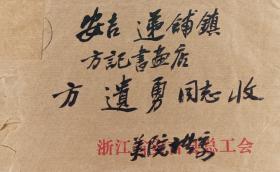 安吉 递铺鎮
方記書画店
方遺勇同志收
浙江 总工会
美院